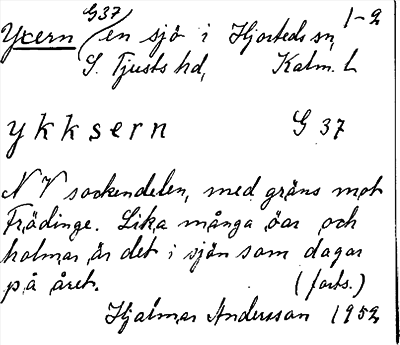 G37 1-2
Yxern (en sjö i Hjorteds sn,
S. Tjusts hd, Kalm. l.
ykksern G 37
NV sockendelen, med gräns mot
Frödinge. Lika många öar och
holmar är det i sjön som dagar
på året. (forts.)
Hjalmar Andersson 1952